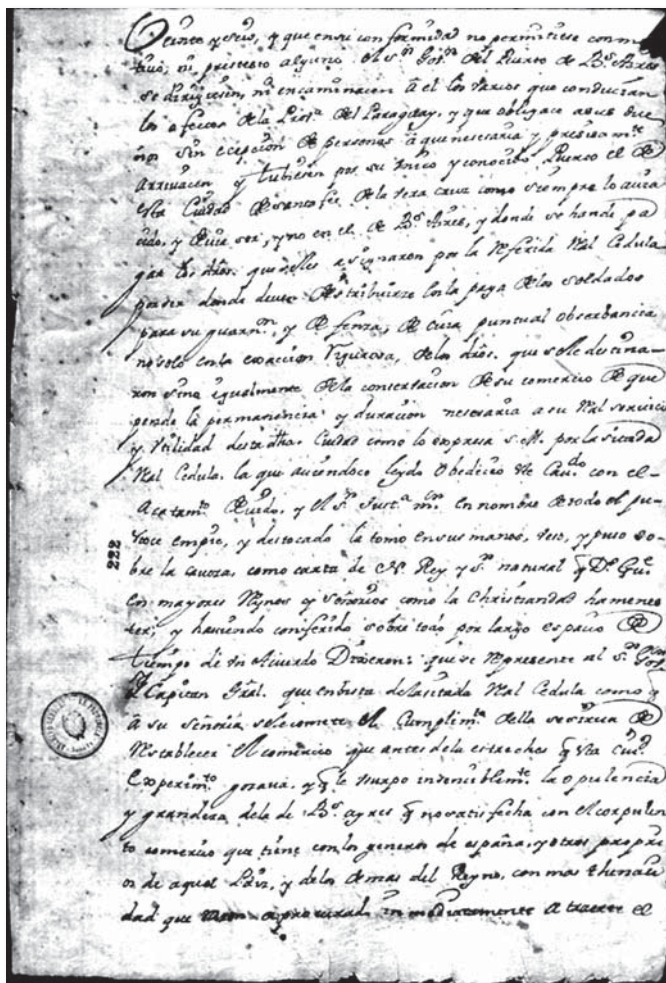 Veinte y seis, y que en su conformidad no permitiese con m
tivo, ni pretexto alguno el Sr. Govr. del Puerto de Bs. Aires
se dirijiesen, ni encaminacen a el los varios que conducian
los efectos de la Prova. del Paraguay, y que obligace a sus due
nos sin ecepcion de personas a que nesesaria y presisamte
Arrivacen y tubiesen por su unico y conocido Puerto el de
esta Ciudad de Santa fee de la vera cruz como siempre lo avia
sido, y devia ser, y no en el de Bs. Ayres, y donde se han de pa
gar los dros. que se les asignaron por la referida Ral Cedula
por ser donde deve distribuirse con la paga de los soldados
para su guarnn. y defensa, de cuia puntual observancia
no solo con la exaccion rigurosa, de los dros. que se le destina
ron sino igualmente de la conservacion de su comercio de que
pende la permanencia y duracion nesesaria a su Ral servicio
y utilidad desta dha. Ciudad como lo expresa S. M. por la sitada
Ral Cedula. la que aviendose leydo Obedecio este Cavdo. con el
Acatamto. devido, y el Sr. en nombre de todo el
se en pie, y destocado la tomo en sus manos, veso, y puso so
bre la caveza, como carta de N. Rey y Sr. natural q Ds. Gue.
en mayores Reynos y señorios como la Christiandad ha menes
ter; y haviendo conferido sobre todo por largo espacio de
tiempo de un Acuerdo Dixeron: que se represente al Sr. Govr.
y Capitan Gral. que en vista de la sitada Ral Cedula como q
a su señoria se le comete el Cumplimto. della se sirva de
Restablecer el comercio que antes de la estreches q esta Ciud.
Experimto. gozava, y q le usurpo insensiblemte. la opulencia
y grandeza de la de Bs. ayres q no satisfecha con el corpulen
to comercio que tiene con los generos de españa, y otros propri
os de aquel Pais, y de los demas del Reyno, con mas
dad que a procurado inmediatamente atraerse el
222